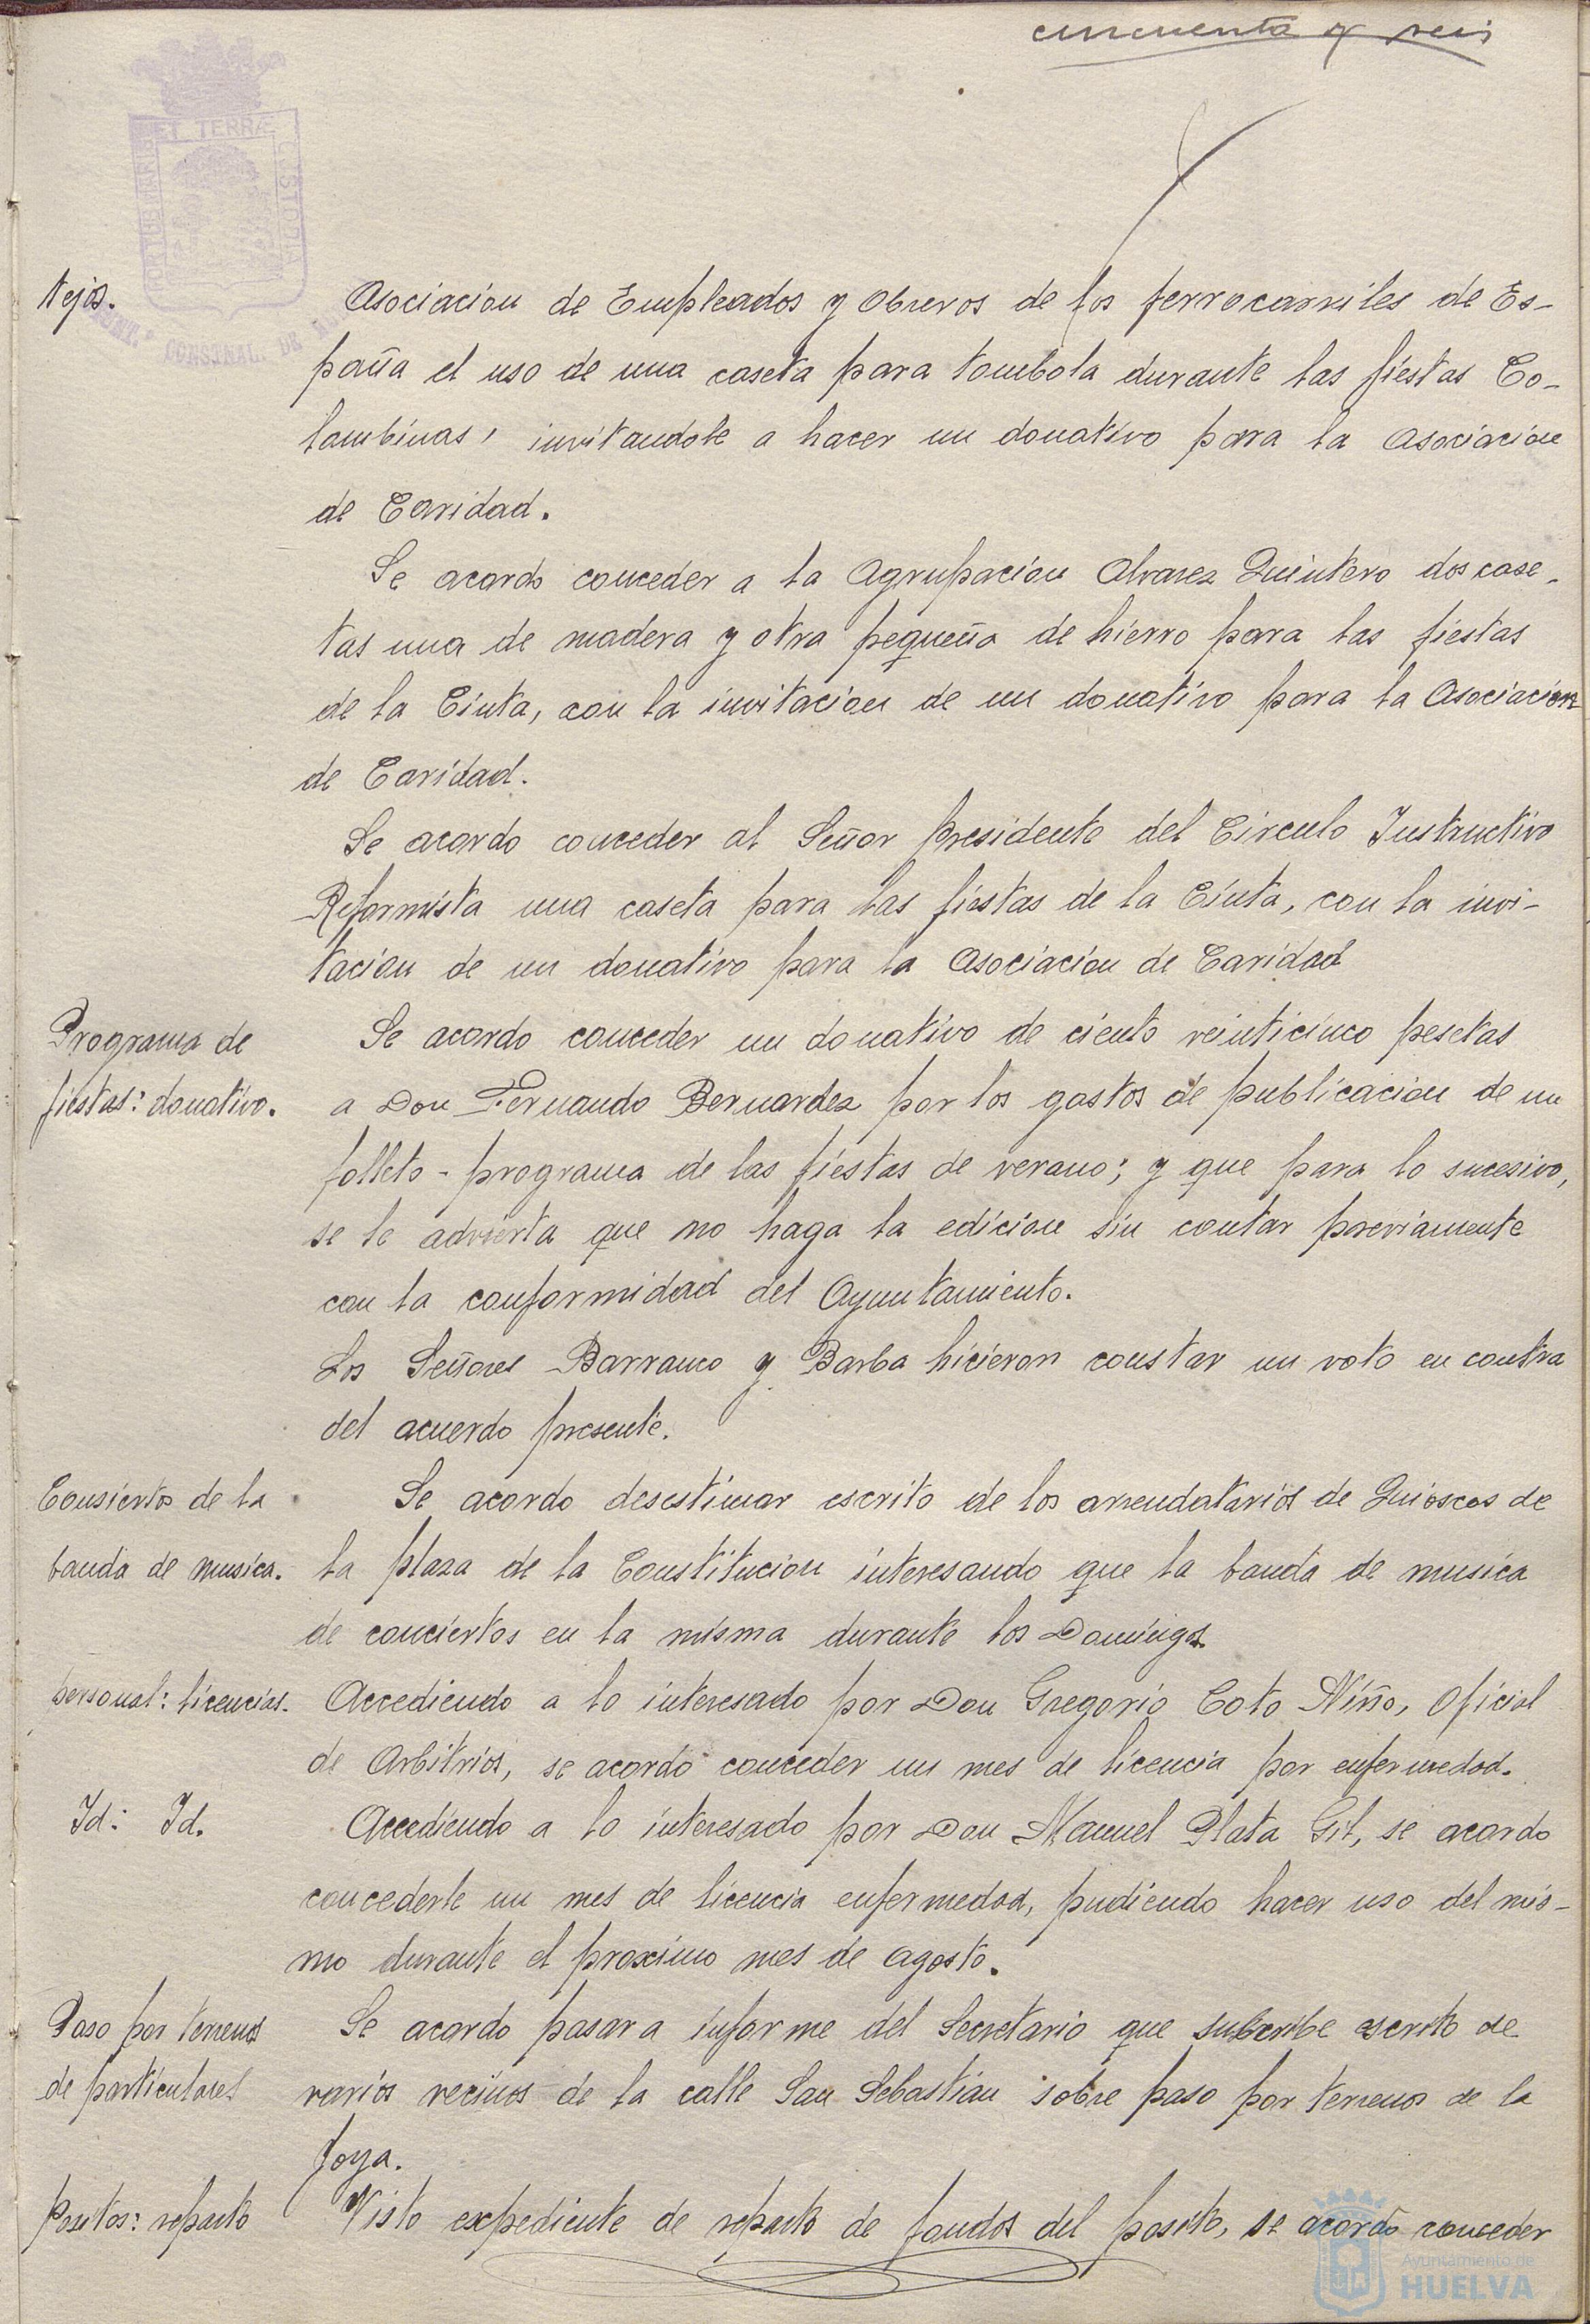 cincuenta y seis
PORTUS MARIS ET TERRÆ CUSTODIA
CONSTNAL. DE
tejos.
Asociacion de Empleados y Obreros de los ferrocarriles de Es-
paña el uso de una caseta para tombola durante las fiestas Co-
lombinas, invitandole a hacer un donativo para la Asociacion
de Caridad.
Se acordo conceder a la Agrupacion Alvarez Quintero dos case-
tas una de madera y otra pequeña de hierro para las fiestas
de la Cinta, con la invitacion de un donativo para la Asociacion
de Caridad.
Se acordo conceder al Señor Presidente del Circulo Instructivo
Reformista una caseta para las fiestas de la Cinta, con la invi-
tacion de un donativo para la Asociacion de Caridad
Programa de
fiestas: donativo.
Se acordo conceder un donativo de ciento veinticinco pesetas
a Don Fernando Bernardez por los gastos de publicacion de un
folleto-programa de las fiestas de verano; y que para lo sucesivo,
se le advierta que no haga la edicion sin contar previamente
con la conformidad del Ayuntamiento.
Los Señores Barranco y Barba hicieron constar un voto en contra
del acuerdo presente.
Consiertos de la
banda de musica.
Se acordo desestimar escrito de los arrendatarios de Quioscos de
la plaza de la Constitucion interesando que la banda de musica
de conciertos en la misma durante los Domingos.
personal: licencias.
Accediendo a lo interesado por Don Gregorio Coto Niño, Oficial
de Arbitrios, se acordo conceder un mes de licencia por enfermedad.
Id: Id.
Accediendo a lo interesado por Don Manuel Plata Gil, se acordo
concederle un mes de licencia enfermedad, pudiendo hacer uso del mis-
mo durante el proximo mes de agosto.
Paso por terrenos
de particulares
Se acordo pasar a informe del Secretario que subcribe escrito de
varios vecinos de la calle San Sebastian sobre paso por terrenos de la
Joya.
Positos: reparto
Visto expediente de reparto de fondos del posito, se acordo conceder
Ayuntamiento de
HUELVA